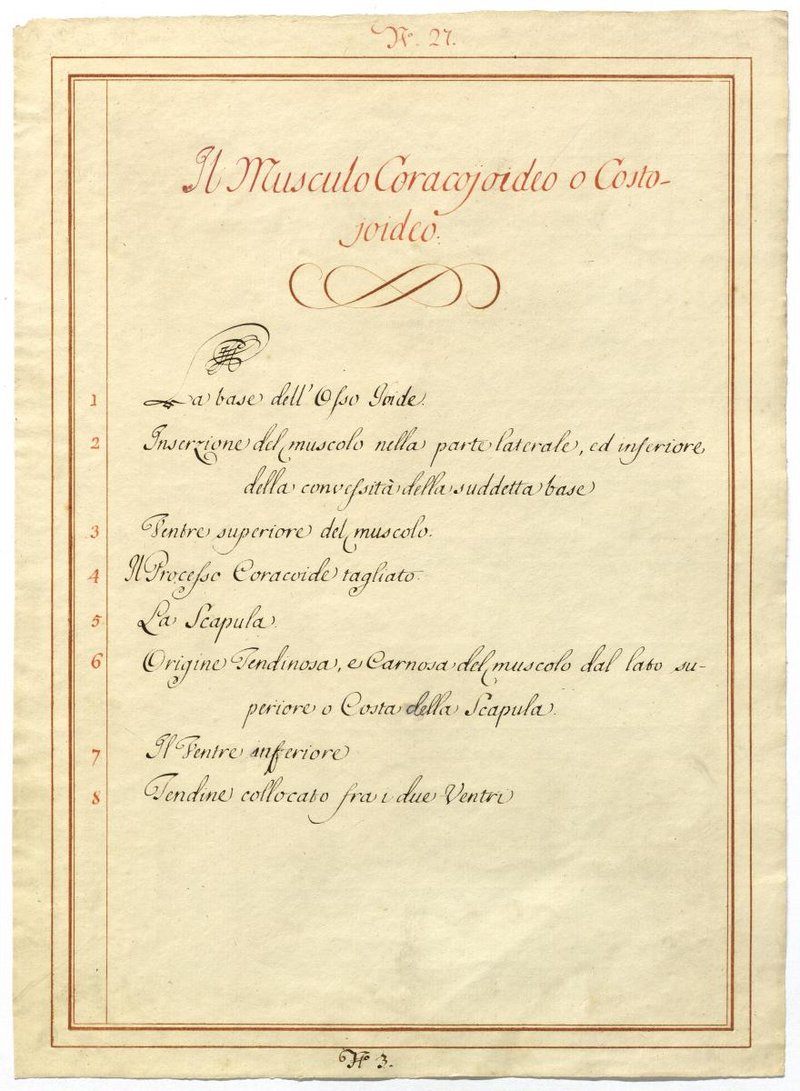 N.º 27.
Il Musculo Coracojoideo o Costo-
joideo.
1 La base dell' Osso Joide.
2 Inserzione del muscolo nella parte laterale, ed inferiore
della convessità della suddetta base
3 Ventre superiore del muscolo.
4 Il Processo Coracoide tagliato.
5 La Scapula.
6 Origine Tendinosa, e Carnosa del muscolo dal lato su-
periore o Costa della Scapula.
7 Il Ventre inferiore
8 Tendine collocato fra i due Ventri
N.º 3.